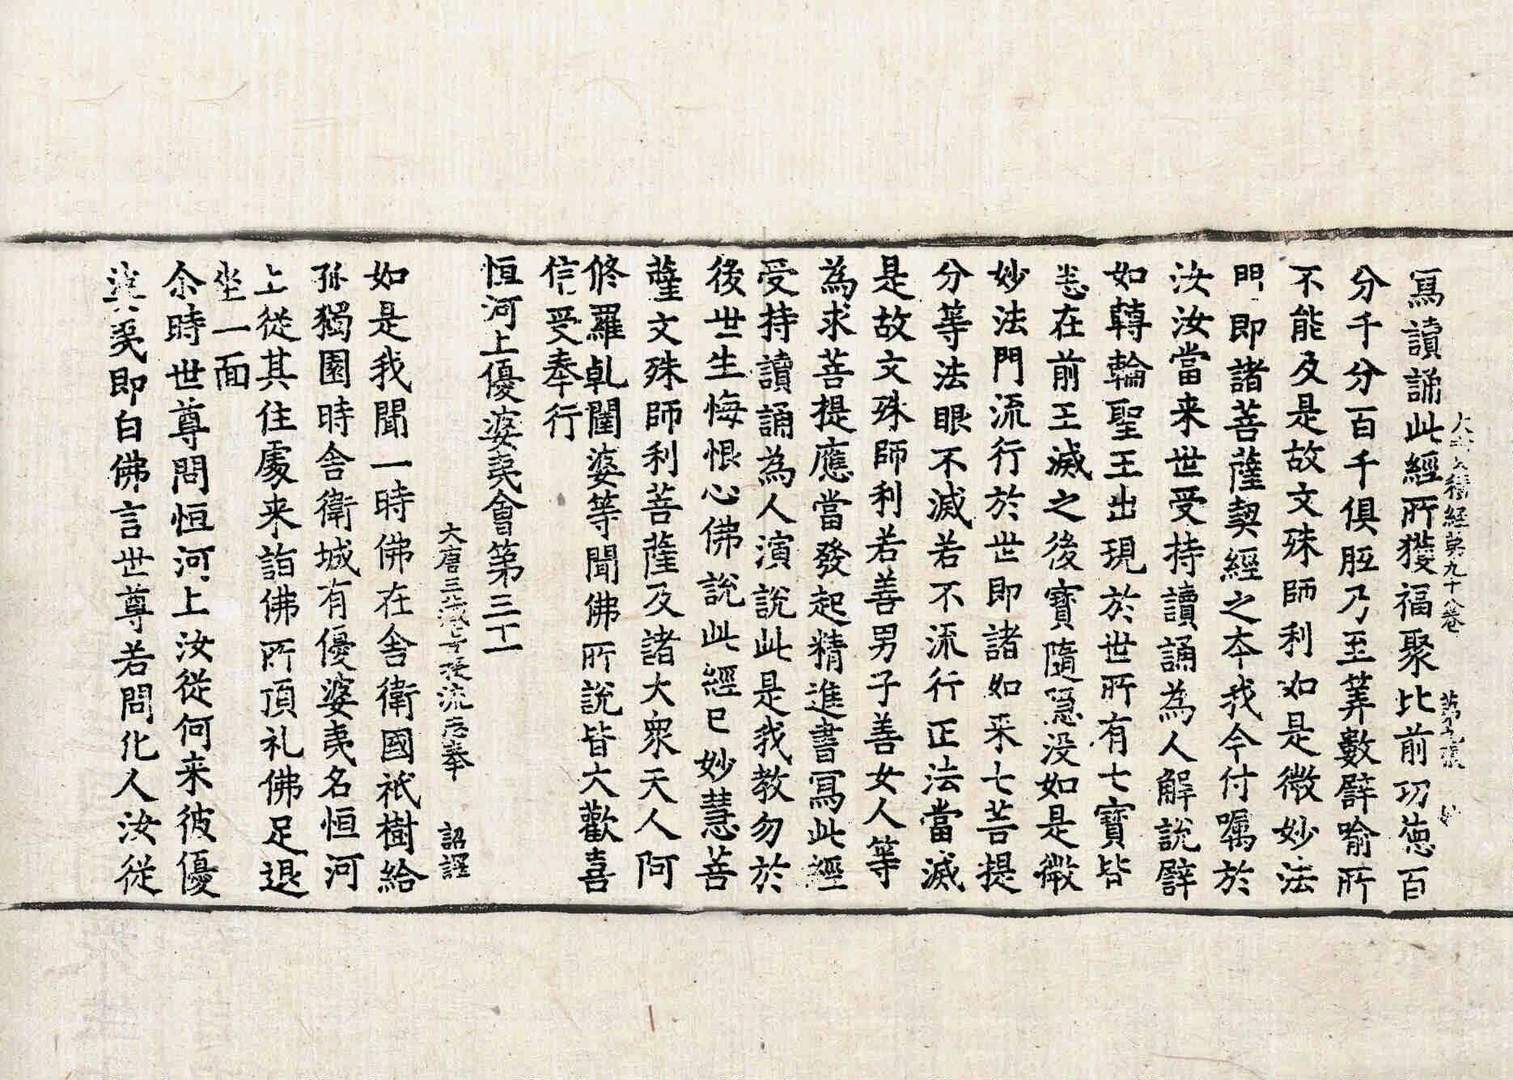 大寶積經第九十八卷
寫讀誦此經所獲福聚比前功德百
分千分百千俱胝乃至筭數譬喻所
不能及是故文殊師利如是微妙法
門即諸菩薩契經之本我今付嘱於
汝汝當来世受持讀誦為人解說譬
如轉輪聖王出現於世所有七寶皆
悉在前王滅之後寶隨隱没如是微
妙法門流行於世即諸如来七菩提
分等法眼不滅若不流行正法當滅
是故文殊師利若善男子善女人等
為求菩提應當發起精進書寫此經
受持讀誦為人演說此是我教勿於
後世生悔恨心佛說此經已妙慧菩
薩文殊師利菩薩及諸大衆天人阿
修羅乹闥婆等聞佛所說皆大歡喜
信受奉行
恒河上優婆夷會第三十一
大唐三藏菩提流志奉 詔譯
如是我聞一時佛在舍衛國祇樹給
孤獨園時舍衛城有優婆夷名恒河
上從其住處来詣佛所頂礼佛足退
坐一面
尒時世尊問恒河上汝從何来彼優
婆夷即白佛言世尊若問化人汝從